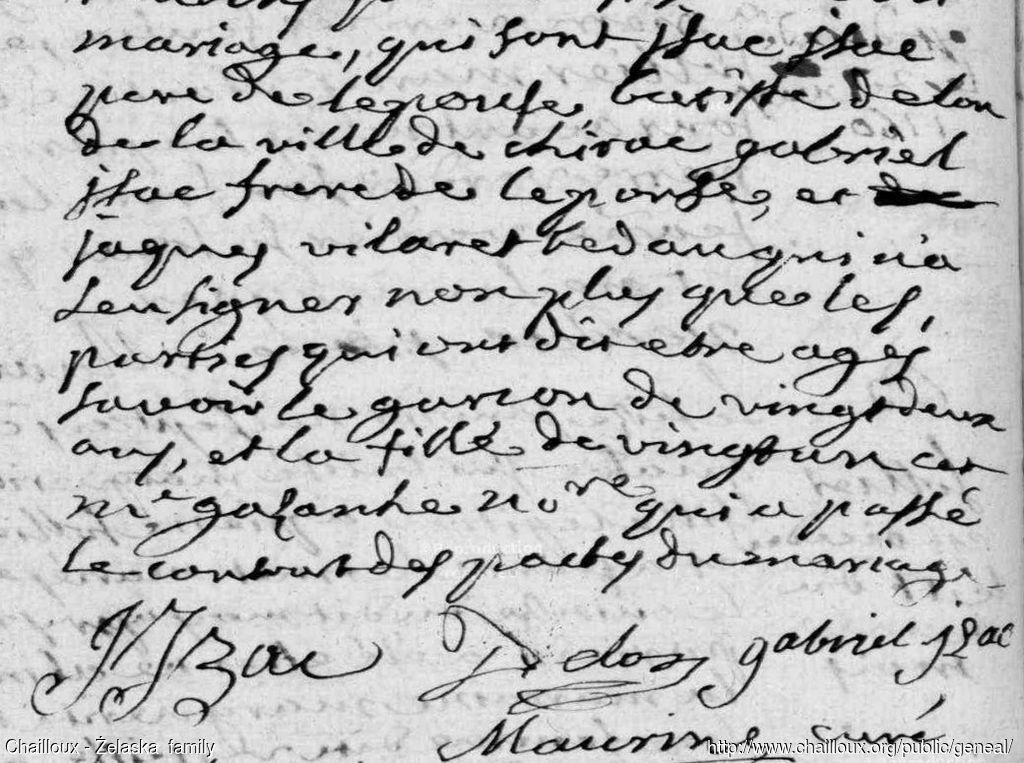 mariage, qui sont jsac jsac
pere de lepouse, batiste delon
de la ville de chirac gabriel
jsac frere de lepouse, et
jaques vilaret bedau qui n'a
seu signer non plus que les,
parties qui ont dit etre ages
savoir le garcon de vingt deux
ans, et la fille de vingt un cet
mre galanhe nore qui a passé
le contrat des pactes du mariage
JJzac Delon gabriel jzac
Maurin curé
Chailloux - Żelaska family
http://www.chailloux.org/public/geneal/